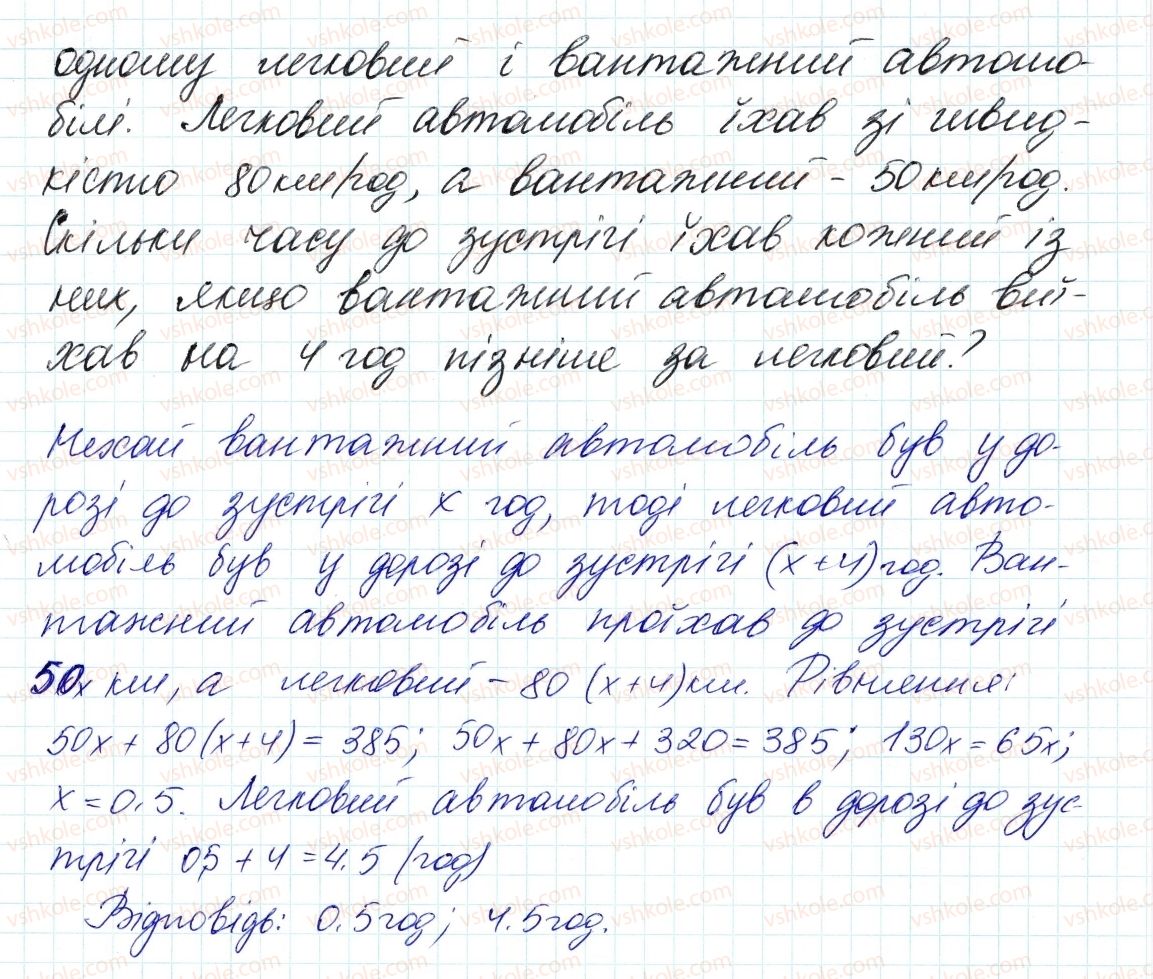 одному легковий і вантажний автомо-
білі. Легковий автомобіль їхав зі швид-
кістю 80 км/год, а вантажний - 50 км/год.
Скільки часу до зустрічі їхав кожний із
них, якщо вантажний автомобіль виї-
хав на 4 год пізніше за легковий?
Нехай вантажний автомобіль був у до-
розі до зустрічі x год, тоді легковий авто-
мобіль був у дорозі до зустрічі (x+4) год. Ван-
тажний автомобіль проїхав до зустрічі
50x км, а легковий - 80 (x+4) км. Рівняння:
50x + 80(x+4) = 385; 50x + 80x + 320 = 385; 130x = 65x;
x = 0,5. Легковий автомобіль був в дорозі до зус-
трічі 0,5 + 4 = 4.5 (год)
Відповідь: 0.5 год; 4.5 год.